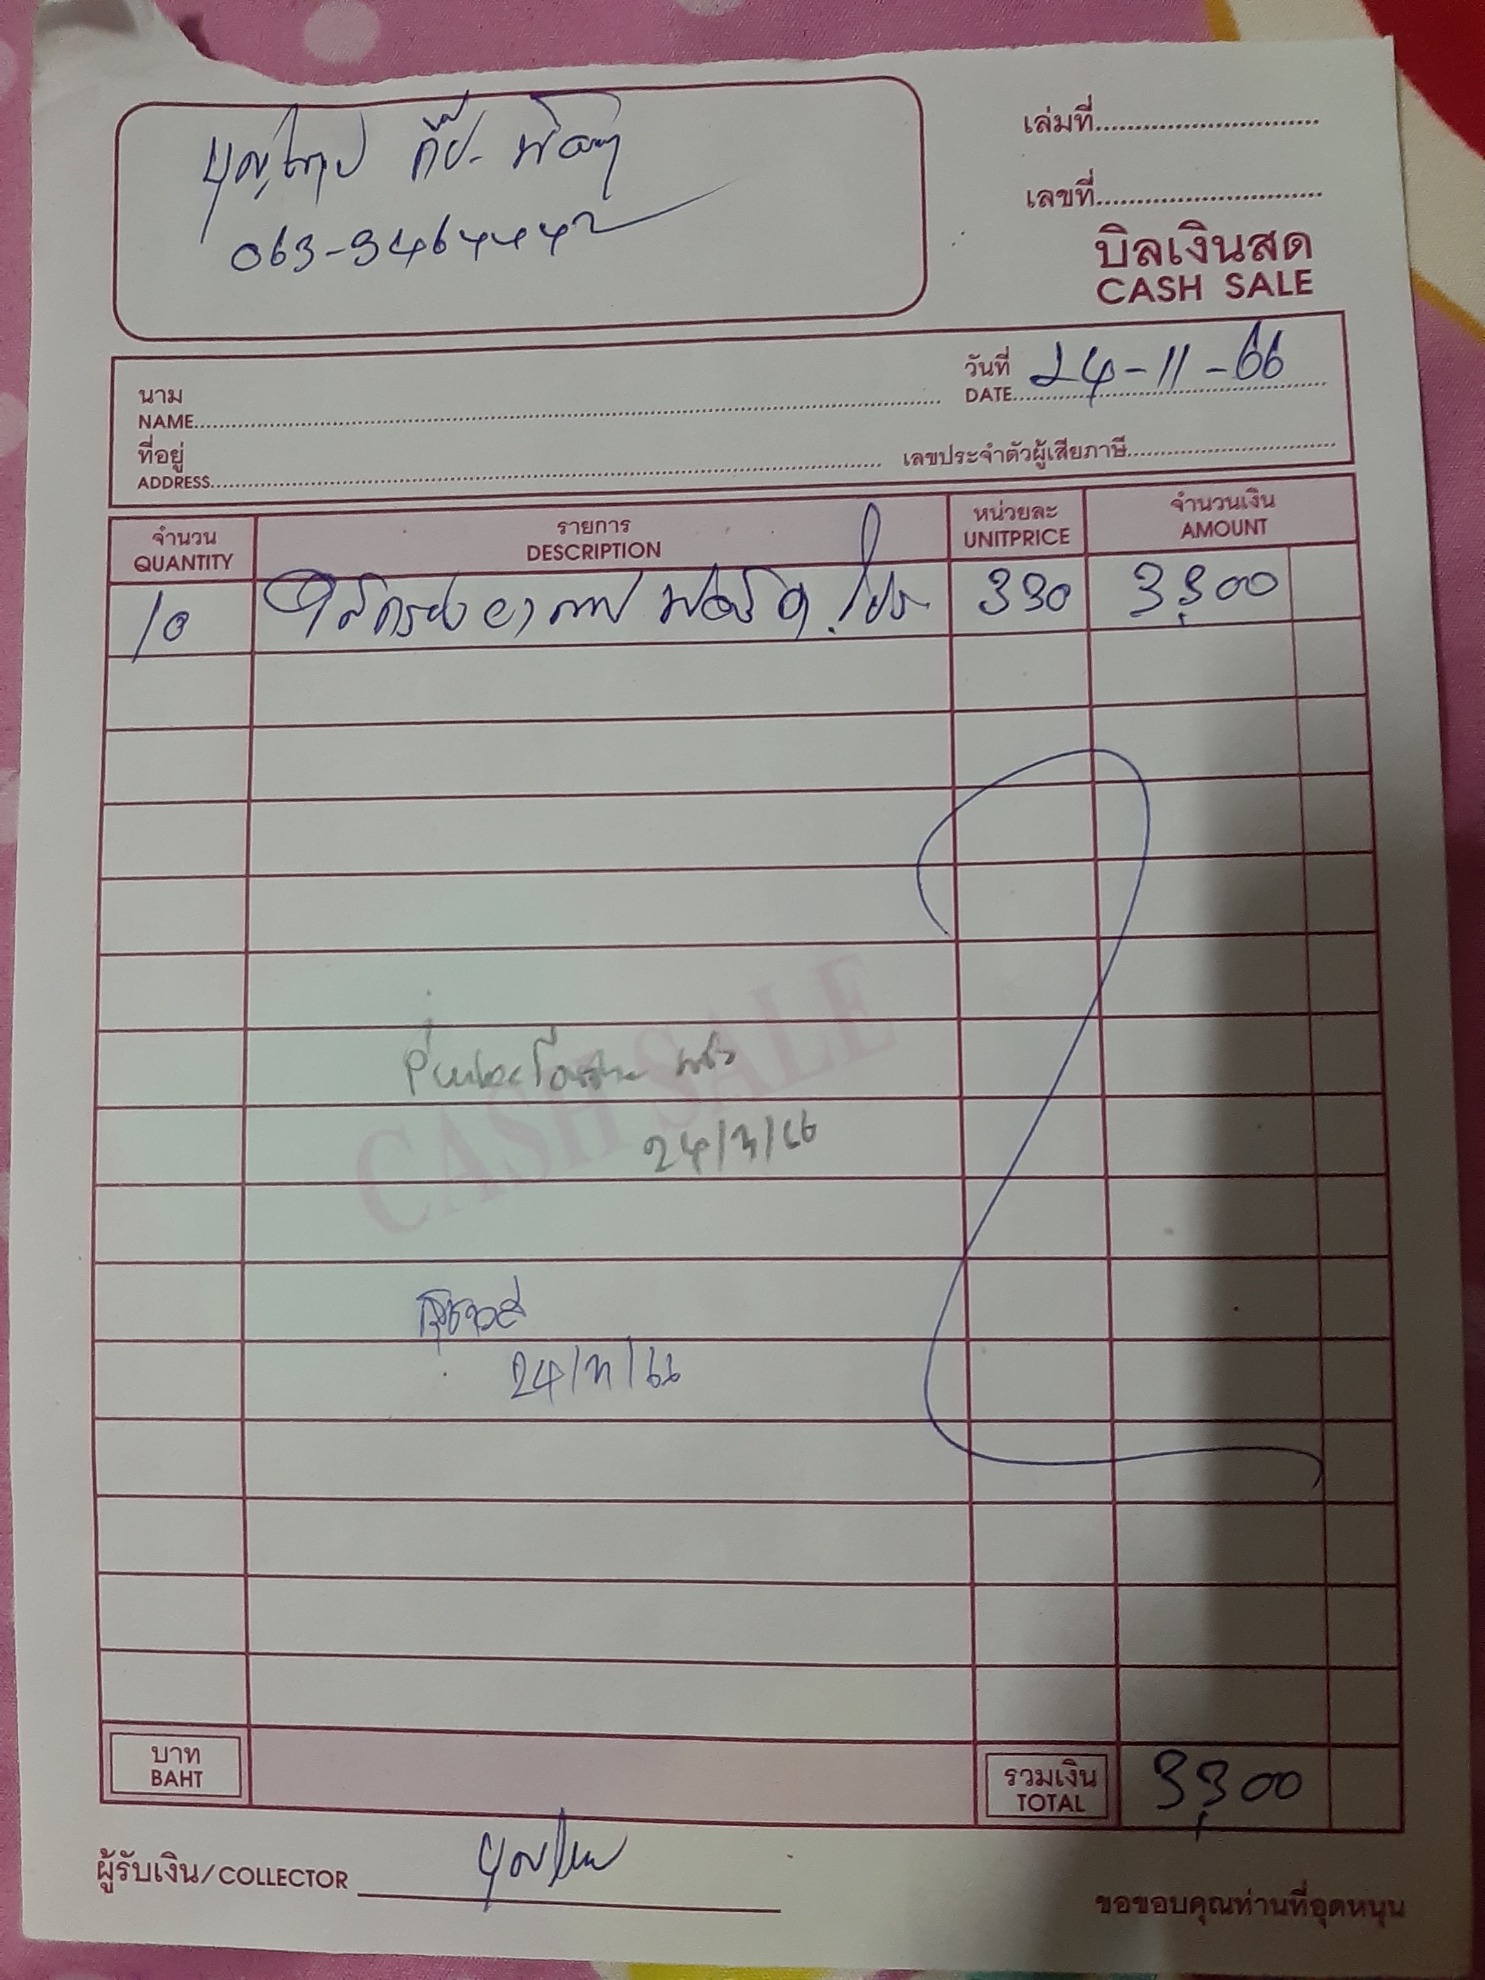 063-3464442
เล่มที่
เลขที่
บิลเงินสด
CASH SALE
วันที่
DATE 24-11-66
นาม
NAME
ที่อยู่
ADDRESS เลขประจำตัวผู้เสียภาษี
จำนวน รายการ หน่วยละ จำนวนเงิน
QUANTITY DESCRIPTION UNITPRICE AMOUNT
10 ไส้กรองอากาศ 330 3,300
CASH SALE
24/11/66
24/11/66
บาท รวมเงิน
BAHT TOTAL 3,300
ผู้รับเงิน/COLLECTOR
ขอขอบคุณท่านที่อุดหนุน